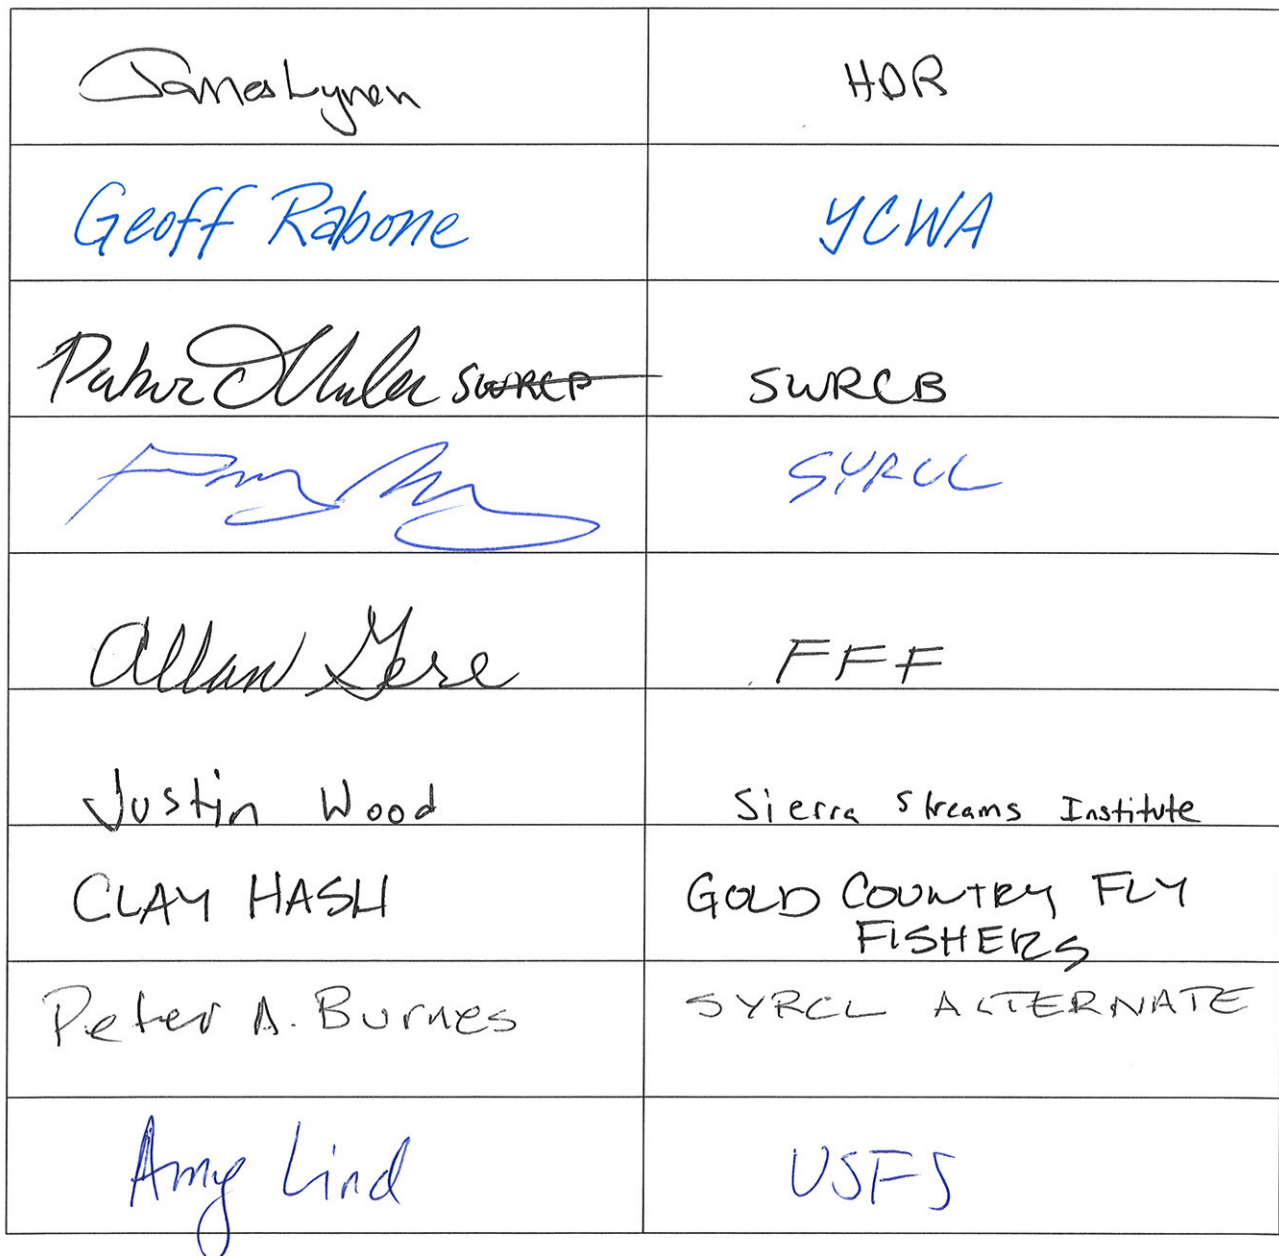 James Lynen HDR
Geoff Rabone YCWA
SWRCB
SYRCL
Allan Gere FFF
Justin Wood Sierra Streams Institute
CLAY HASH GOLD COUNTRY FLY
FISHERS
Peter A. Burnes SYRCL ALTERNATE
Amy Lind USFS